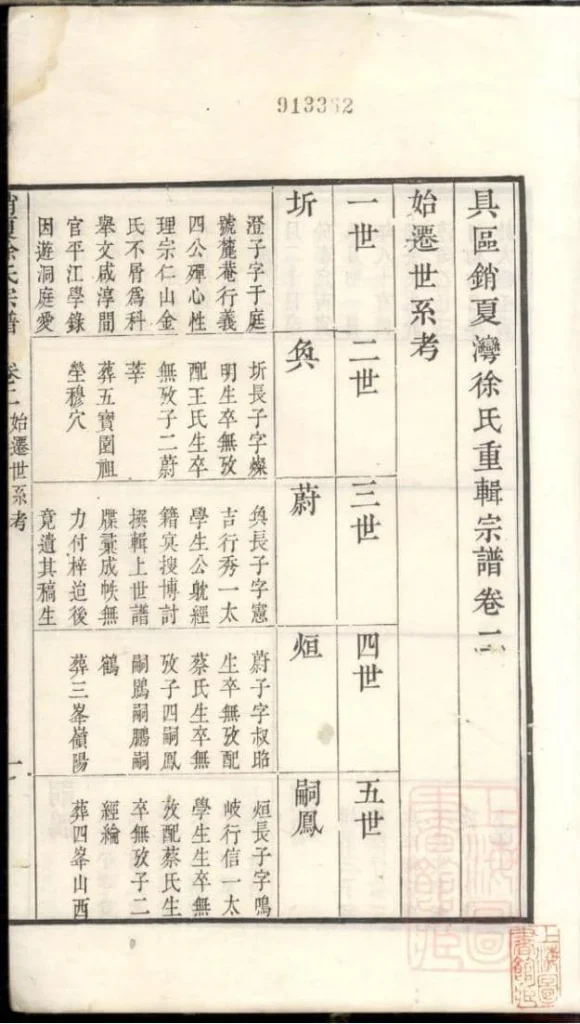 913352
具區銷夏灣徐氏重輯宗譜卷二
始遷世系考
一世
二世
三世
四世
五世
圻
奐
蔚
烜
嗣鳳
澄子字于庭
號麓菴行義
四公殫心性
理宗仁山金
氏不屑爲科
舉文咸淳間
官平江學錄
因遊洞庭愛
圻長子字燦
明生卒無攷
配王氏生卒
無攷子二蔚
莘
葬五寶園祖
塋穆穴
奐長子字憲
吉行秀一太
學生公躭經
籍㝠搜博討
撰輯上世譜
牒彙成帙無
力付梓迨後
竟遺其稿生
蔚子字叔昭
生卒無攷配
蔡氏生卒無
攷子四嗣鳳
嗣鵰嗣鵬嗣
鶴
葬三峯嶺陽
烜長子字鳴
岐行信一太
學生生卒無
攷配蔡氏生
卒無攷子二
經綸
葬四峯山西
銷夏徐氏宗譜
卷二
始遷世系考
一
上海圖書館藏
上海圖書館藏